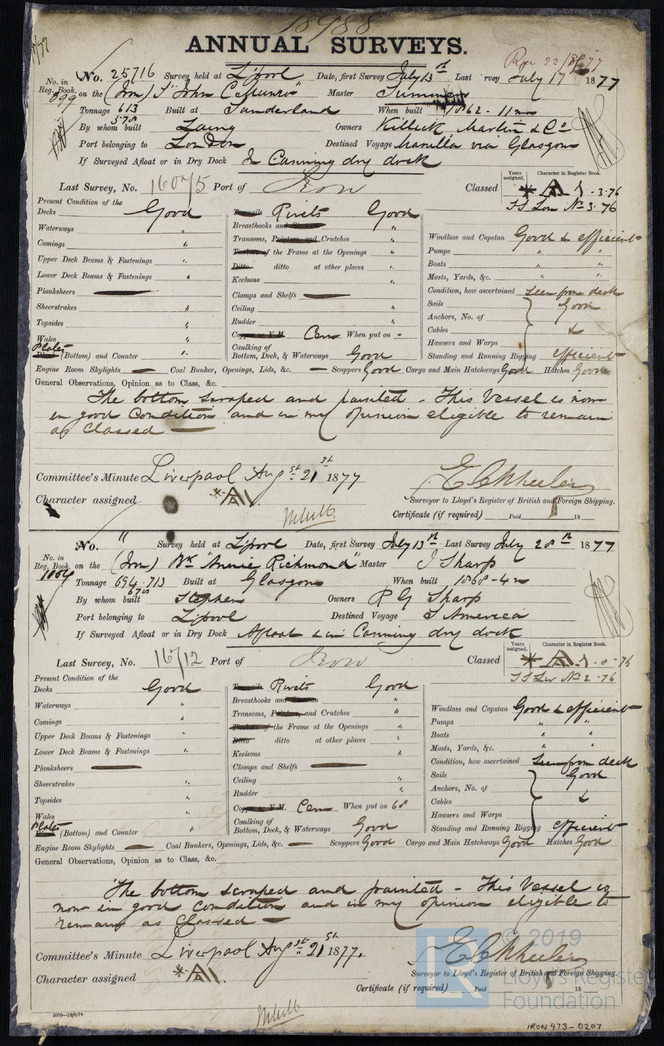 18988
ANNUAL SURVEYS.
No. 25716 Survey held at L'pool Date, first Survey July 13th Last Survey July 17 1877
No. in Reg. Book 899 on the (Iron) Master
Tonnage 613 578 Built at Sunderland When built 1862 - 11 mo
By whom built Laing Owners Killick, Martin & Co
Port belonging to London Destined Voyage Manilla via Glasgow
If Surveyed Afloat or in Dry Dock In Canning dry dock
Last Survey, No. 16075 Port of Iron Classed A 1 - 3.76
Years assigned. Character in Register Book.
SS Lon No 3-76
Present Condition of the
Decks Good Rivets Good
Waterways " Breasthooks and
Comings " Transoms, Pointers and Crutches "
Windlass and Capstan Good & efficient
Upper Deck Beams & Fastenings " of the Frame at the Openings "
Pumps " "
Lower Deck Beams & Fastenings " Ditto ditto at other places "
Boats " "
Planksheers Keelsons "
Masts, Yards, &c. " "
Sheerstrakes " Clamps and Shelfs
Condition, how ascertained Seen from deck
Topsides " Ceiling "
Sails Good
Wales " Rudder "
Anchors, No. of
Plates (Bottom) and Counter " Cem When put on -
Cables &
Caulking of Bottom, Deck, & Waterways Good
Hawsers and Warps
Standing and Running Rigging efficient
Engine Room Skylights Coal Bunker, Openings, Lids, &c. Scuppers Good Cargo and Main Hatchways Good Hatches Good
General Observations, Opinion as to Class, &c.
The bottom scraped and painted - This Vessel is now
in good condition and in my opinion eligible to remain
as Classed
Committee's Minute Liverpool Aug 21st 1877
Character assigned A1
Surveyor to Lloyd's Register of British and Foreign Shipping.
Certificate (if required) Paid 18
No. " Survey held at L'pool Date, first Survey July 13th Last Survey July 28th 1877
No. in Reg. Book 1004 on the (Iron) Bk "Annie Richmond" Master J Sharp
Tonnage 694 713 670 Built at Glasgow When built 1868 - 4 m
By whom built Stephen Owners R G Sharp
Port belonging to L'pool Destined Voyage S America
If Surveyed Afloat or in Dry Dock Afloat & in Canning dry dock
Last Survey, No. 16712 Port of Iron Classed A 1 - 0-76
Years assigned. Character in Register Book.
SS Liv No 2-76
Present Condition of the
Decks Good Rivets Good
Waterways " Breasthooks and
Windlass and Capstan Good & efficient
Comings " Transoms, Pointers and Crutches "
Pumps " "
Upper Deck Beams & Fastenings " of the Frame at the Openings "
Boats " "
Lower Deck Beams & Fastenings " Ditto ditto at other places "
Masts, Yards, &c. " "
Planksheers Keelsons "
Condition, how ascertained Seen from deck
Sheerstrakes " Clamps and Shelfs
Sails Good
Topsides " Ceiling "
Anchors, No. of
Wales " Rudder "
Cables &
Plates (Bottom) and Counter " Cem When put on 68
Hawsers and Warps
Caulking of Bottom, Deck, & Waterways Good
Standing and Running Rigging efficient
Engine Room Skylights Coal Bunkers, Openings, Lids, &c. Scuppers Good Cargo and Main Hatchways Good Hatches Good
General Observations, Opinion as to Class, &c.
The bottom scraped and painted - This Vessel is
now in good condition and in my opinion eligible to
remain as Classed
Committee's Minute Liverpool Aug 21st 1877.
Character assigned A1
Surveyor to Lloyd's Register of British and Foreign Shipping.
Certificate (if required) Paid 18
© 2019
Lloyd's Register
Foundation
IRON 473-0207